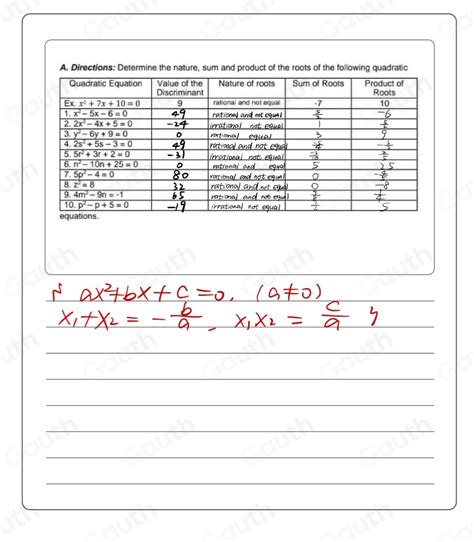 A. Directions: Determine the nature, sum and product of the roots of the following quadratic
Quadratic Equation Value of the Discriminant Nature of roots Sum of Roots Product of Roots
Ex. x² + 7x + 10 = 0 9 rational and not equal -7 10
1. x² – 5x – 6 = 0 49 rational and not equal -6
2. 2x² – 4x + 5 = 0 -24 irrational not equal 1
3. y² – 6y + 9 = 0 0 rational equal 3 9
4. 2s² + 5s – 3 = 0 49 rational and not equal
5. 5r² + 3r + 2 = 0 -31 irrational not equal
6. n² – 10n + 25 = 0 0 rational and equal 5 25
7. 5p² – 4 = 0 80 rational and not equal 0
8. z² = 8 32 rational and not equal 0 -8
9. 4m² – 9n = -1 65 rational and not equal
10. p² – p + 5 = 0 -19 irrational not equal 5
equations.
ax²+bx+c=0. (a≠0)
x₁+x₂ = -b/a, x₁x₂ = c/a